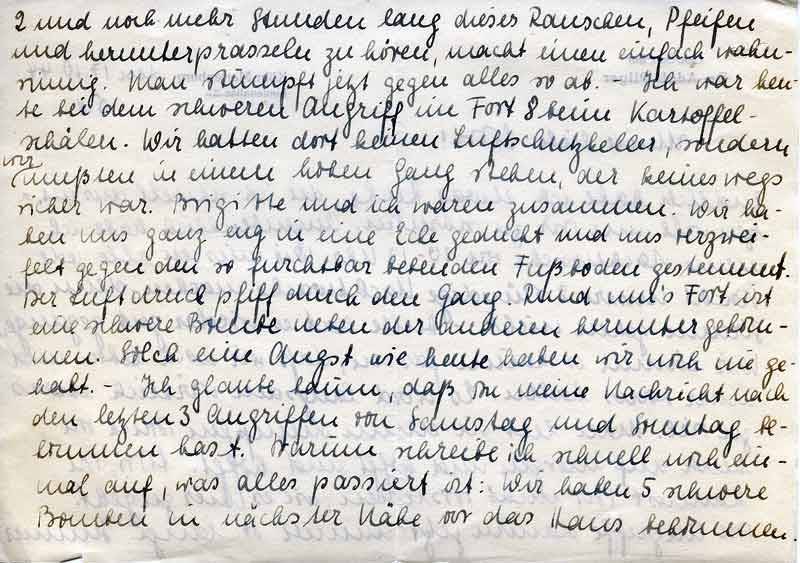 2 und noch mehr Stunden lang dieses Rauschen, Pfeifen
und herunterprasseln zu hören, macht einen einfach wahn-
sinnig. Man stumpft jetzt gegen alles so ab. - Ich war heu-
te bei dem schweren Angriff im Fort 8 beim Kartoffel-
schälen. Wir hatten dort keinen Luftschutzkeller, sondern
wir
mußten in einem hohen Gang stehen, der keineswegs
sicher war. Brigitte und ich waren zusammen. Wir ha-
ben uns ganz eng in eine Ecke gedrückt und uns verzwei-
felt gegen den so furchtbar bebenden Fußboden gestemmt.
Der Luftdruck pfiff durch den Gang. Rund um's Fort ist
eine schwere Bombe neben der anderen heruntergekom-
men. Solch eine Angst wie heute haben wir noch nie ge-
habt. - Ich glaube kaum, daß Du meine Nachricht nach
den letzten 3 Angriffen von Samstag und Sonntag be-
kommen hast. Darum schreibe ich schnell noch ein-
mal auf, was alles passiert ist: Wir haben 5 schwere
Bomben in nächster Nähe vor das Haus bekommen.